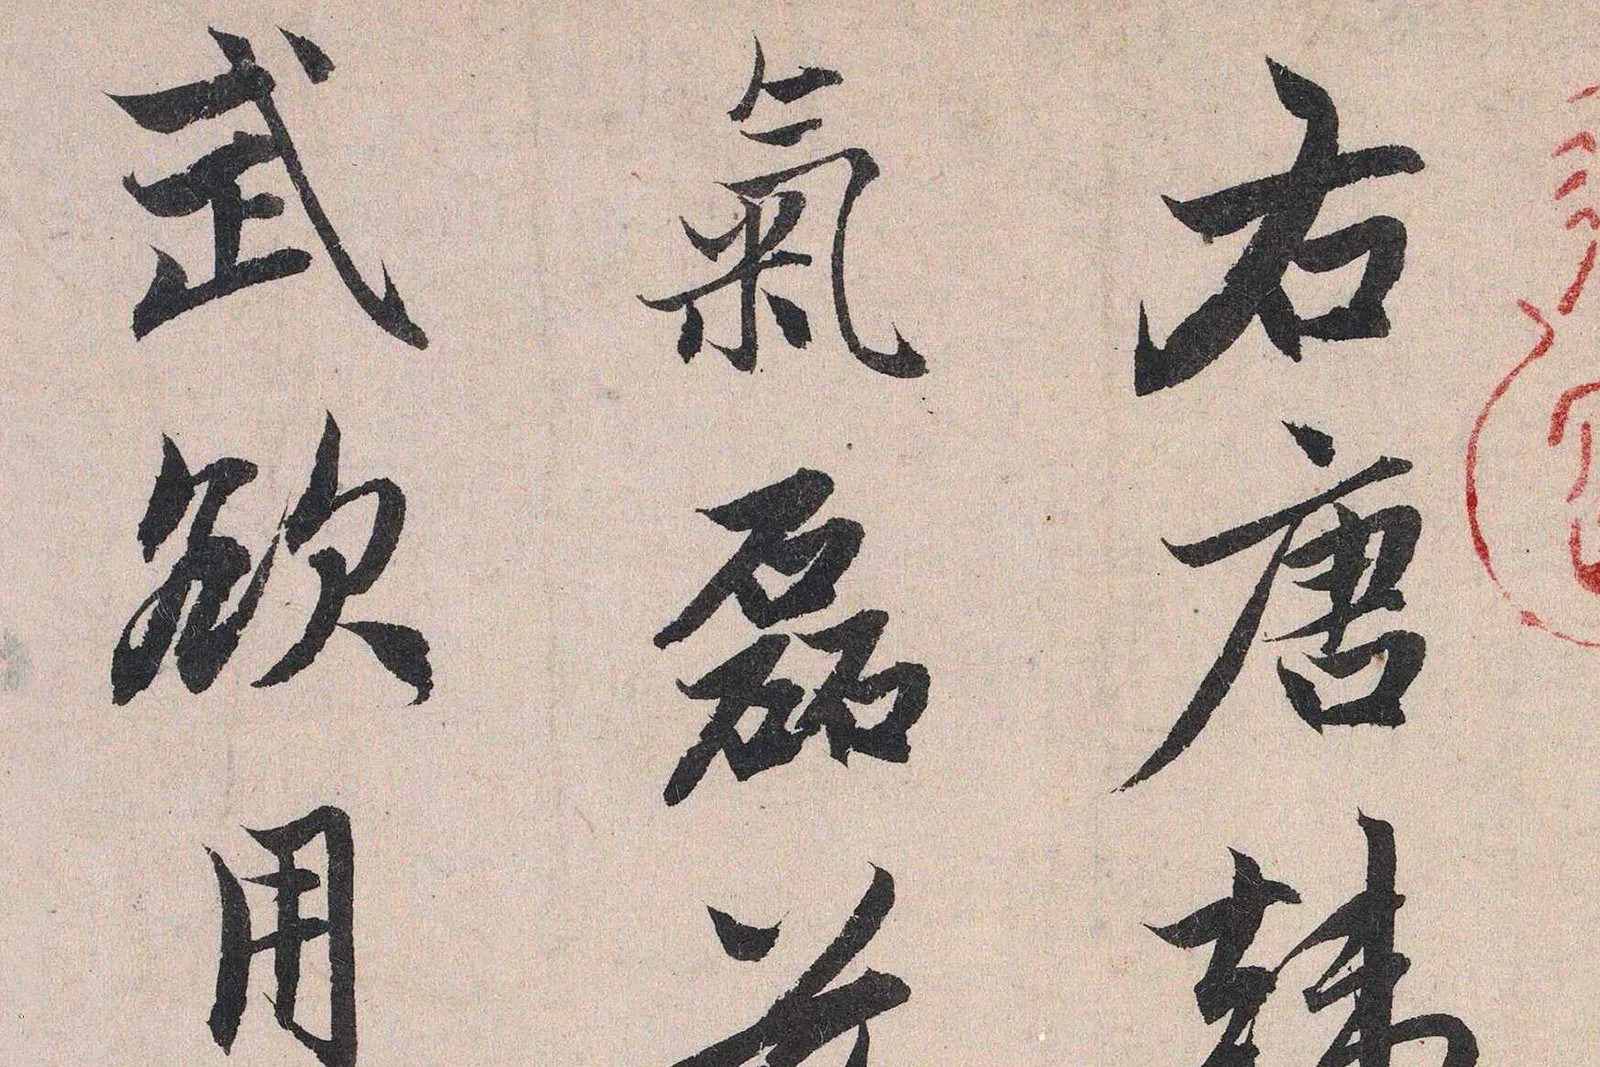 右唐韓
氣磊
武欲用